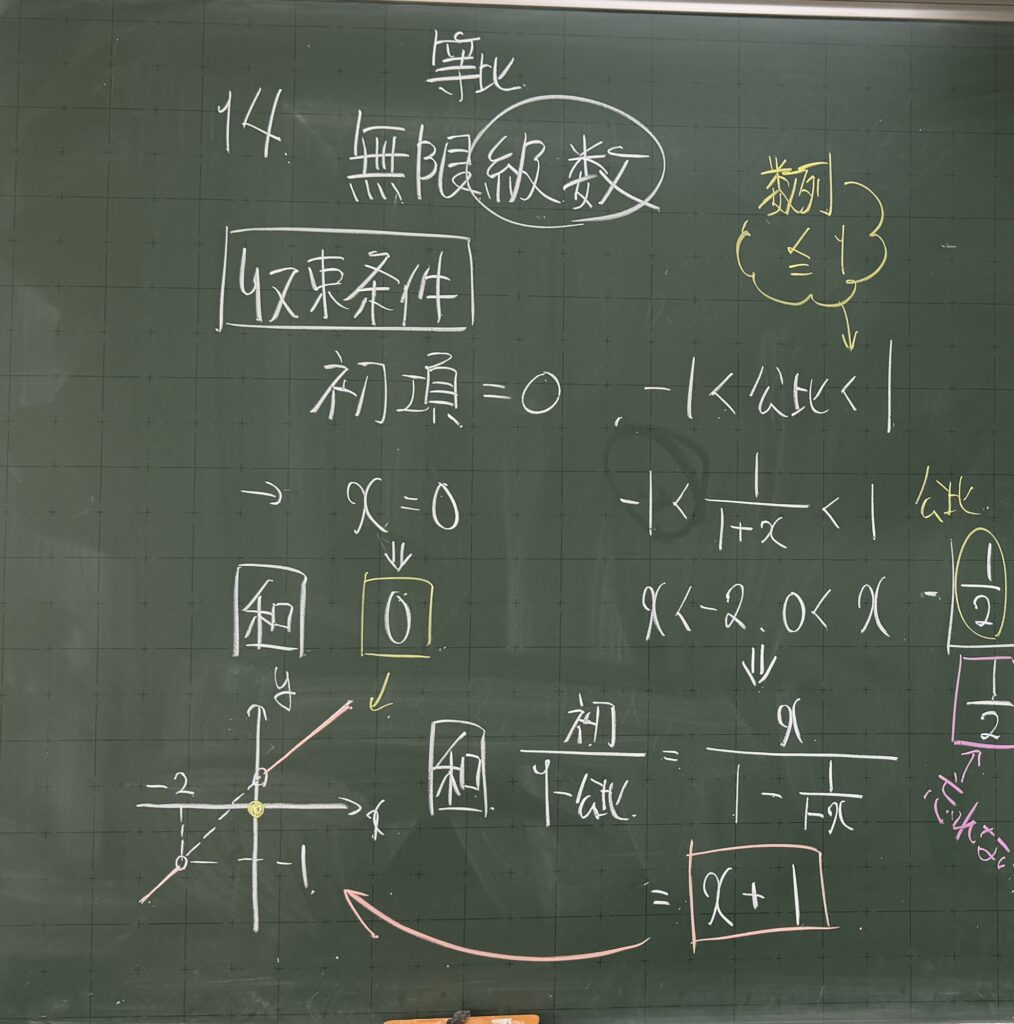 14
等比
無限級数
数列
≦ 1
収束条件
初項 = 0
-1 < 公比 < 1
→ x = 0
-1 < 1/(1+x) < 1
公比
和
0
x < -2, 0 < x
- 1/2
1/2
y
-2
x
-1
和 初/(1-公比) = x/(1 - 1/(1-x))
= x + 1